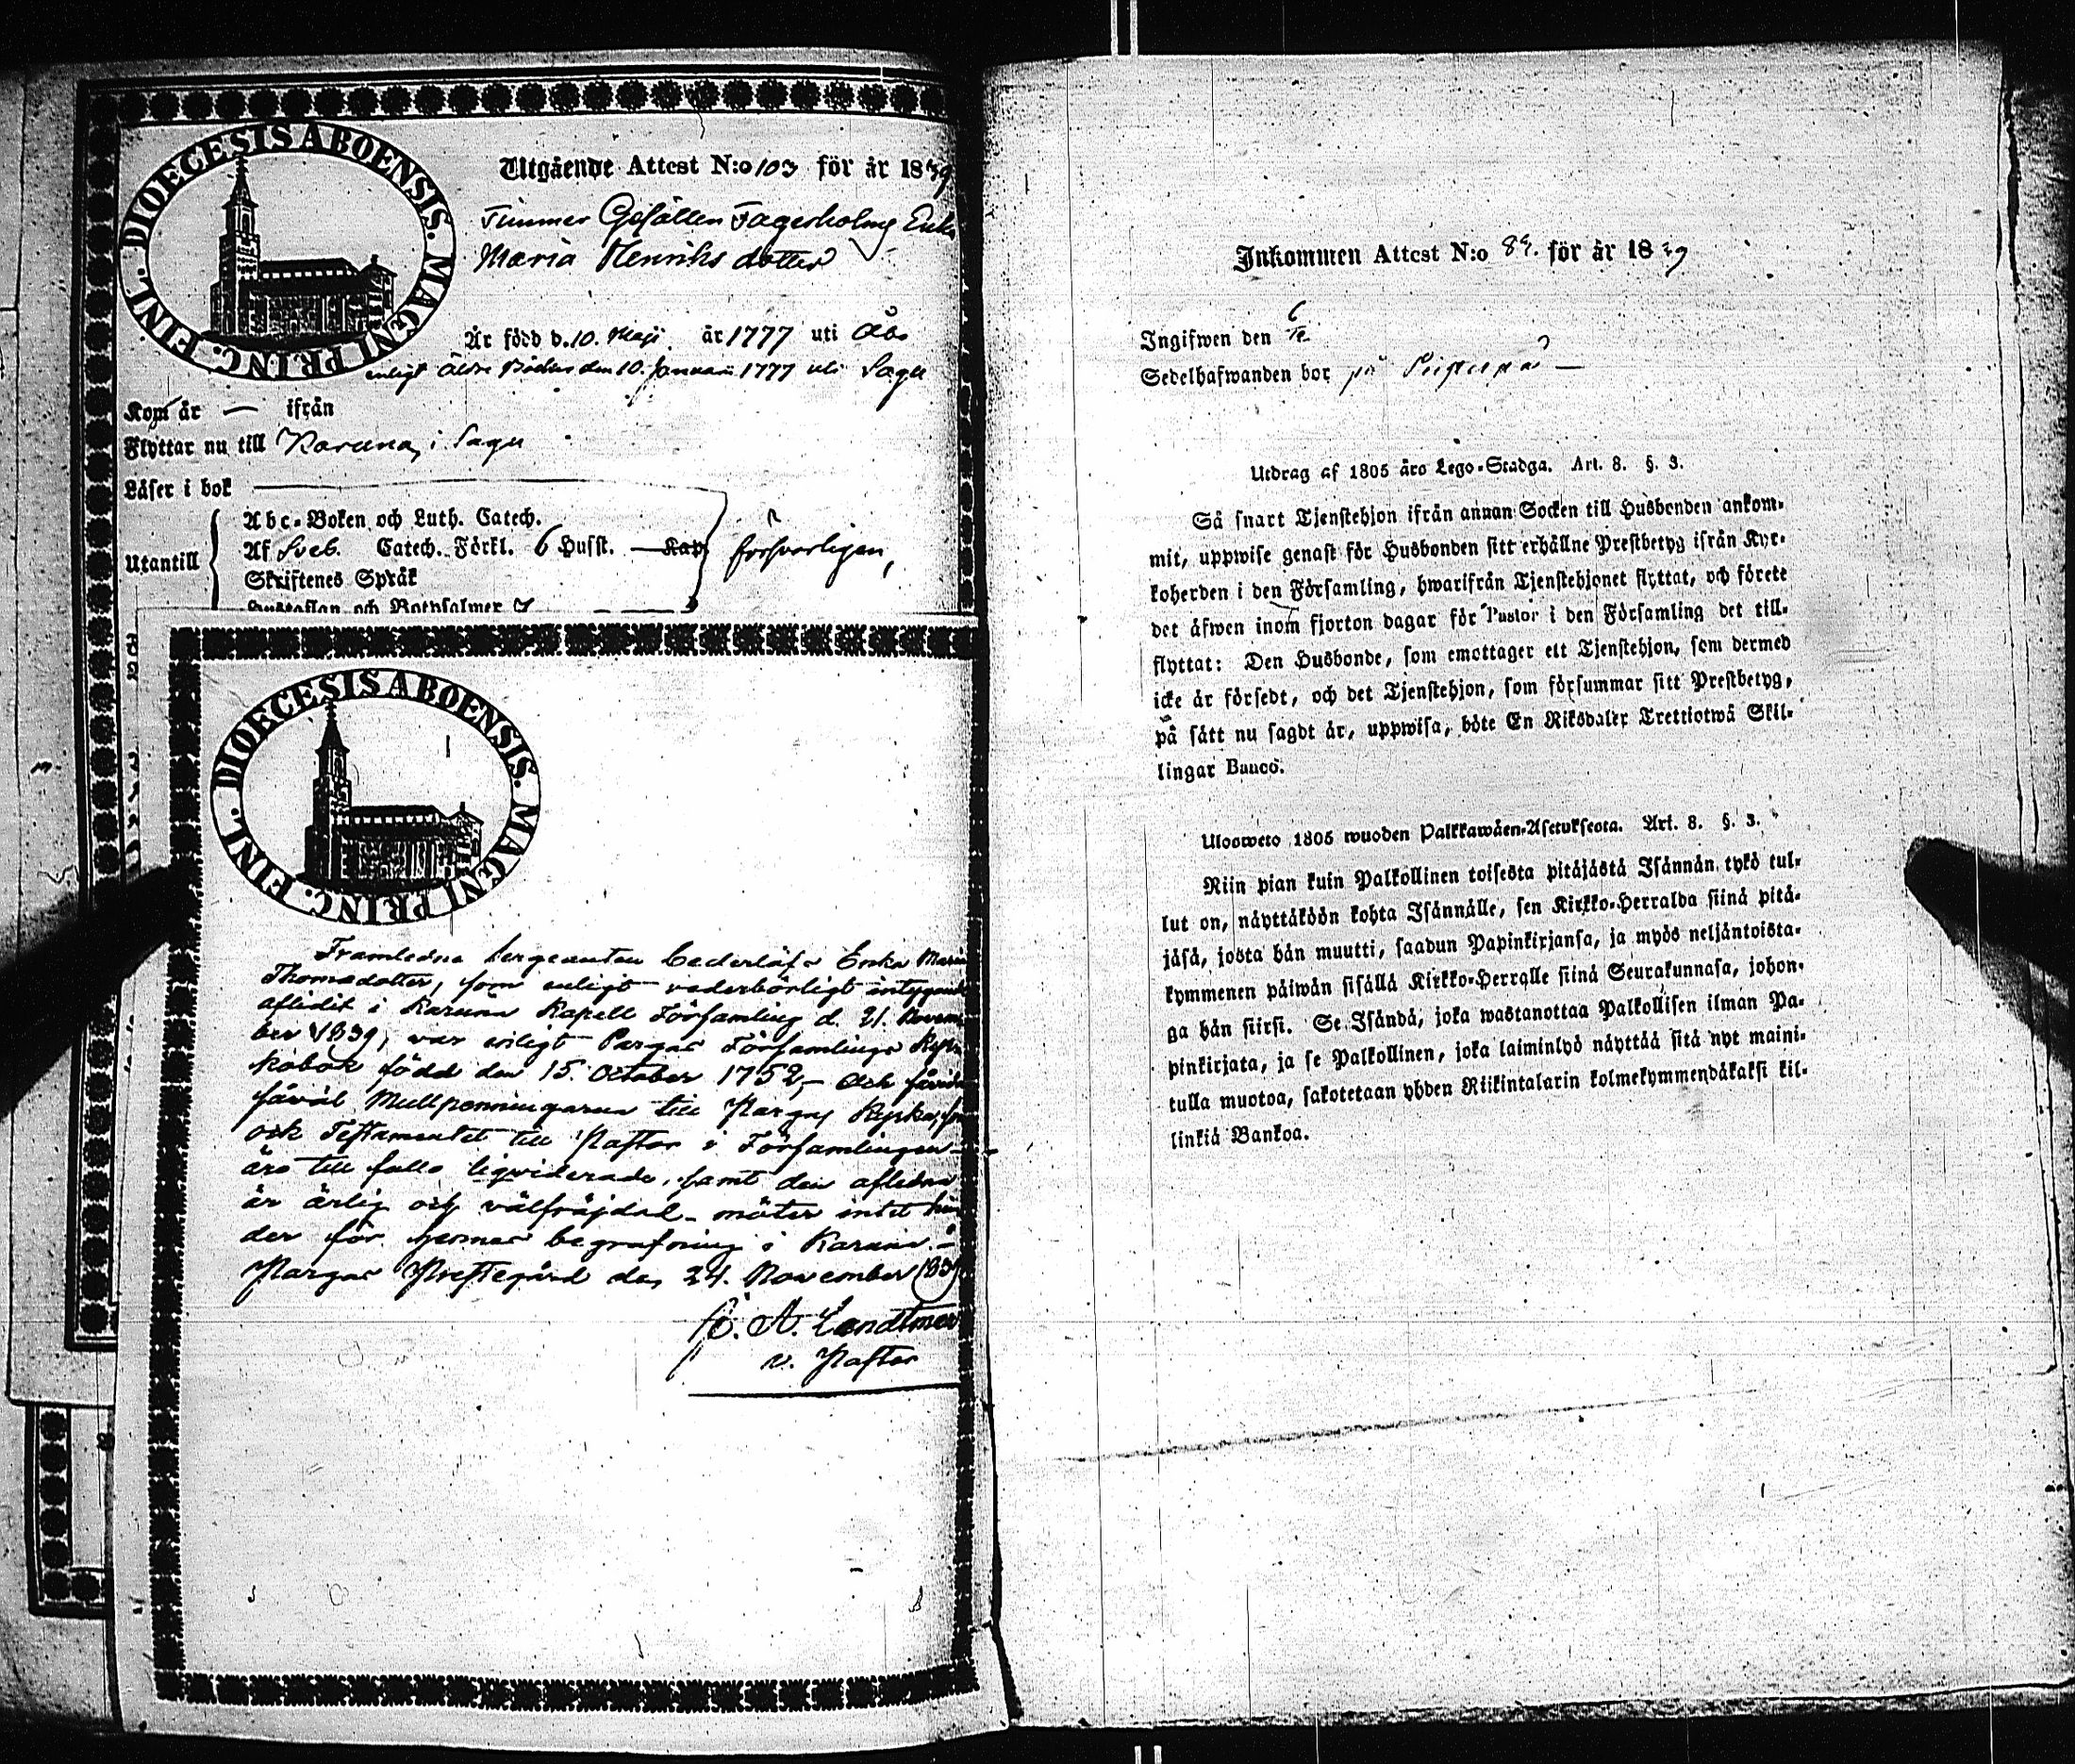 DIOECESIS ABOENSIS. MAGNI PRINC. FINL.
Utgående Attest N:o 103 för år 1839
Timmer Gesällen Fagerholms Enka
Maria Henriks dotter
Är född d. 10. Maji. år 1777 uti Åbo
enligt Äldre Böcker den 10. Januari 1777 uti Sagu
Kom år — ifrån
Flyttar nu till Karuna, i Sagu
Läser i bok
Utantill
Abc-Boken och Luth. Catech.
Af Sveb. Catech. Förkl. 6 Husst. Kap. försvarligen,
Skriftenes Språk
Hustaflan och Botpsalmer 7
DIOECESIS ABOENSIS. MAGNI PRINC. FINL.
Framledne Sergeanten Cederlöfs Enka Maria
Thomasdotter, som enligt vederbörligt intygande
aflidit i Karuna Kapell Församling d. 21. Novem-
ber 1839, var enligt Pargas Församlings Kyr-
kobok född den 15. October 1752, och
såväl Mullpenningarna till Pargas Kyrka,
ock Testamentet till Pastor i Församlingen
äro till fullo liqviderade, samt den aflidna
är ärlig och välfräjdad - möter intet hin-
der för hennes begrafning i Karuna.
Pargas Prestegård den 24. November 1839
A. Landtman
v. Pastor
Inkommen Attest N:o för år 1839
Ingifwen den 6/12
Sedelhafwanden bor på
Utdrag af 1805 års Lego-Stadga. Art. 8. §. 3.
Så snart Tjenstehjon ifrån annan Socken till Husbonden ankom-
mit, uppwise genast för Husbonden sitt erhållne Prestbetyg ifrån Kyr-
koherden i den Församling, hwarifrån Tjenstehjonet flyttat, och förete
det äfwen inom fjorton dagar för Pastor i den Församling det till-
flyttat: Den Husbonde, som emottager ett Tjenstehjon, som dermed
icke är försedt, och det Tjenstehjon, som försummar sitt Prestbetyg,
på sätt nu sagdt är, uppwisa, böte En Riksdaler Trettiotwå Skil-
lingar Banco.
Ulosweto 1805 wuoden Palkkawäen-Asetuksesta. Art. 8. §. 3.
Niin pian kuin Palkollinen toisesta pitäjästä Isännän tykö tul-
lut on, näyttäköön kohta Isännälle, sen Kirkko-Herralda siinä pitä-
jäsä, josta hän muutti, saadun Papinkirjansa, ja myös neljäntoista-
kymmenen päiwän sisällä Kirkko-Herralle siinä Seurakunnasa, johon-
ga hän siirsi. Se Isändä, joka wastanottaa Palkollisen ilman Pa-
pinkirjata, ja se Palkollinen, joka laiminlyö näyttää sitä nyt maini-
tulla muotoa, sakotetaan yhden Riikintalarin kolmekymmendäkaksi kil-
linkiä Bankoa.